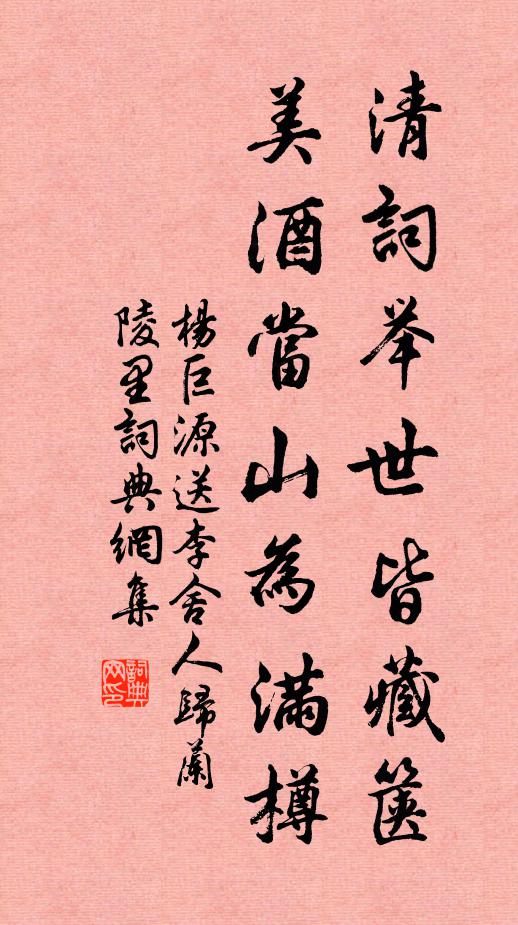 清詞举世皆藏篋
美酒當山為滿樽
楊巨源送李舍人歸蘭
陵里詞典網集
詞典网印